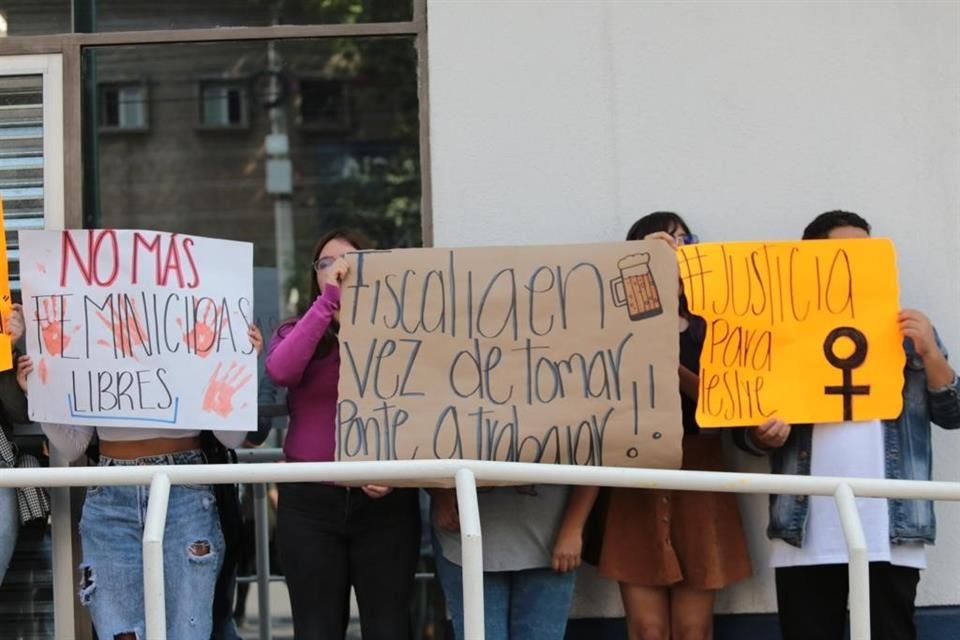 NO MÁS
FEMINICIDAS
LIBRES
Fiscalia en
vez de tomar,
Ponte a trabajar!!
#JUSTICIA
Para
leslye